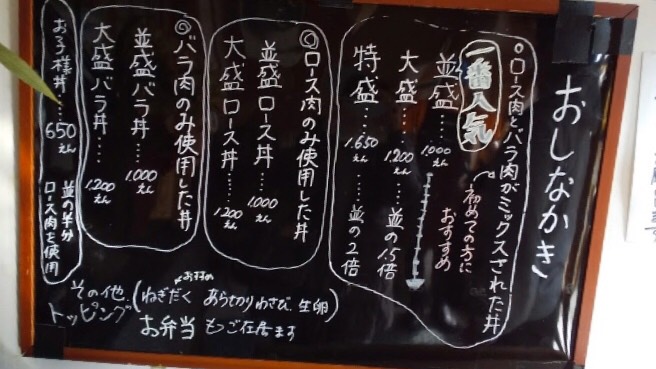 おしなかき
○ロース肉とバラ肉がミックスされた丼
一番人気
初めての方に
おすすめ
並盛‥‥1.000えん
大盛‥‥1.200えん‥‥並の1.5倍
特盛‥‥1.650えん‥‥並の2倍
◎ロース肉のみ使用した丼
並盛ロース丼‥‥1.000えん
大盛ロース丼‥‥1.200えん
◎バラ肉のみ使用した丼
並盛バラ丼‥‥1.000えん
大盛バラ丼‥‥1.200えん
お子様丼‥‥650えん
並の半分
ロース肉を使用
その他.
トッピング
おすすめ
(ねぎだく あらきりわさび、生卵)
お弁当もご在居ます